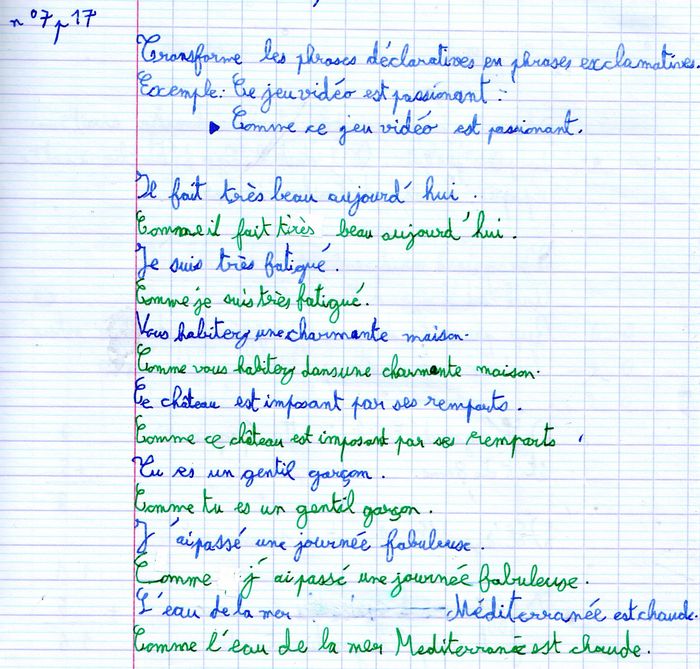 n°7 p 17
Transforme les phrases déclaratives en phrases exclamatives.
Exemple: Ce jeu vidéo est passionant :
▶ Comme ce jeu vidéo est passionant.
Il fait très beau aujourd'hui.
Comme il fait tirès beau aujourd'hui.
Je suis très fatigué.
Comme je suis très fatigué.
Vous habitez une charmante maison.
Comme vous habitez dans une charmante maison.
Ce château est imposant par ses remparts.
Comme ce château est imposant par ses remparts,
Tu es un gentil garçon.
Comme tu es un gentil garçon.
J'ai passé une journée fabuleuse.
Comme j'ai passé une journée fabuleuse.
L'eau de la mer Méditerranée est chaude.
Comme l'eau de la mer Mediterranée est chaude.